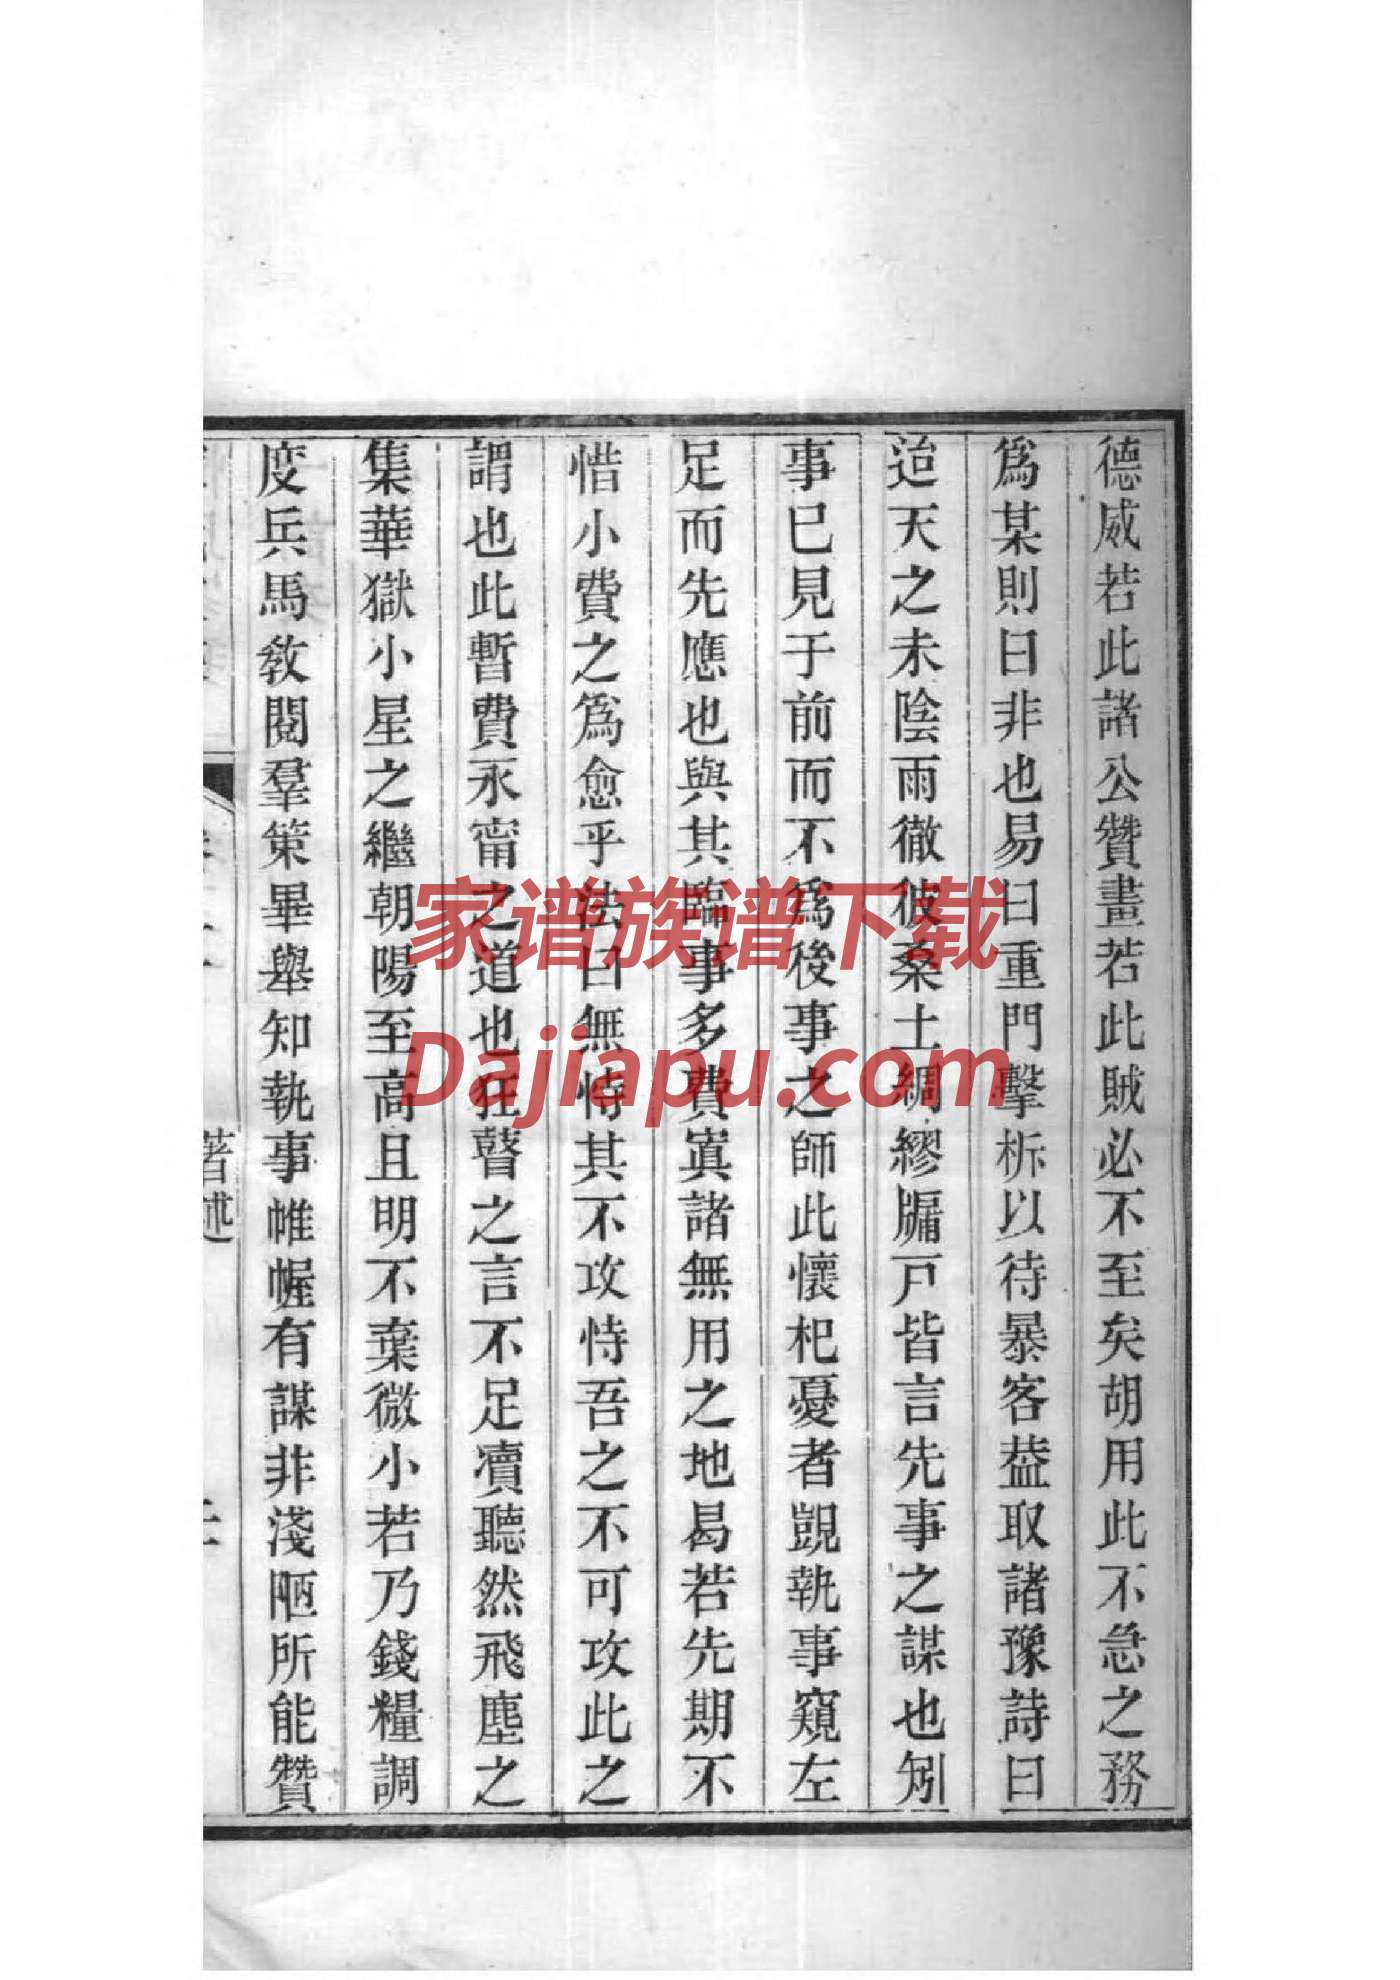 德威若此諸公贊畫若此賊必不至矣胡用此不急之務
爲某則曰非也易曰重門擊柝以待暴客葢取諸豫詩曰
迨天之未陰雨徹彼桑土綢繆牖戸皆言先事之謀也矧
事已見于前而不爲後事之師此懷杞憂者覬執事窺左
足而先應也與其臨事多費寘諸無用之地曷若先期不
惜小費之爲愈乎法曰無恃其不攻恃吾之不可攻此之
謂也此暫費永甯之道也狂瞽之言不足瀆聽然飛塵之
集華嶽小星之繼朝陽至高且明不棄微小若乃錢糧調
度兵馬敎閱羣策畢舉知執事帷幄有謀非淺陋所能贊
著述
家谱族谱下载
Dajiapu.com